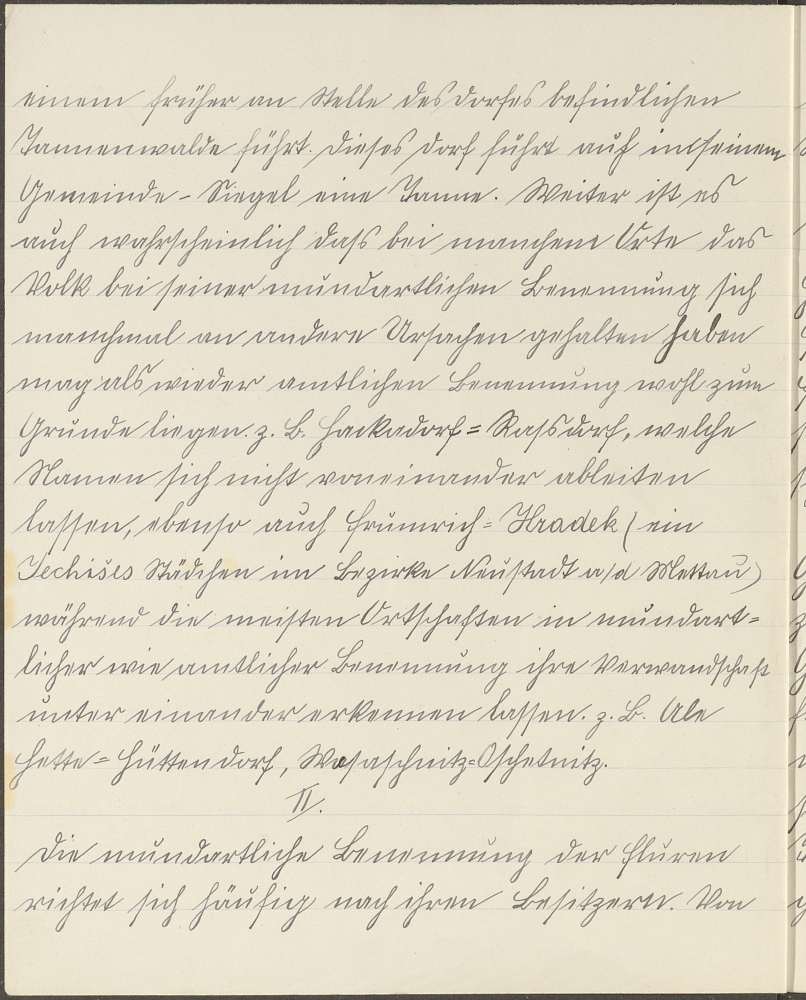 einem früher an Stelle des Dorfes befindlichen
Tannenwalde führt. Dieses Dorf führt auch in seinem
Gemeinde-Siegel eine Tanne. Weiter ist es
auch wahrscheinlich dass bei manchem Orte das
Volk bei seiner mundartlichen Benennung sich
manchmal an andere Ursachen gehalten haben
mag als wieder amtlichen Benennung wohl zum
Grunde liegen. z. B. Hackadorf = Rassdorf, welche
Namen sich nicht voneinander ableiten
lassen, ebenso auch Frumrich = Hradek (ein
Techišes Städchen im Bezirke Neustadt a/d Mettau)
während die meisten Ortschaften in mundart=
licher wie amtlicher Benennung ihre Verwandschaft
unter einander erkennen lassen. z. B. Ale
Hette = Hüttendorf, Wosaschnitz = Oschetnitz.
II.
Die mundartliche Benennung der Fluren
richtet sich häufig nach ihren Besitzern. Von